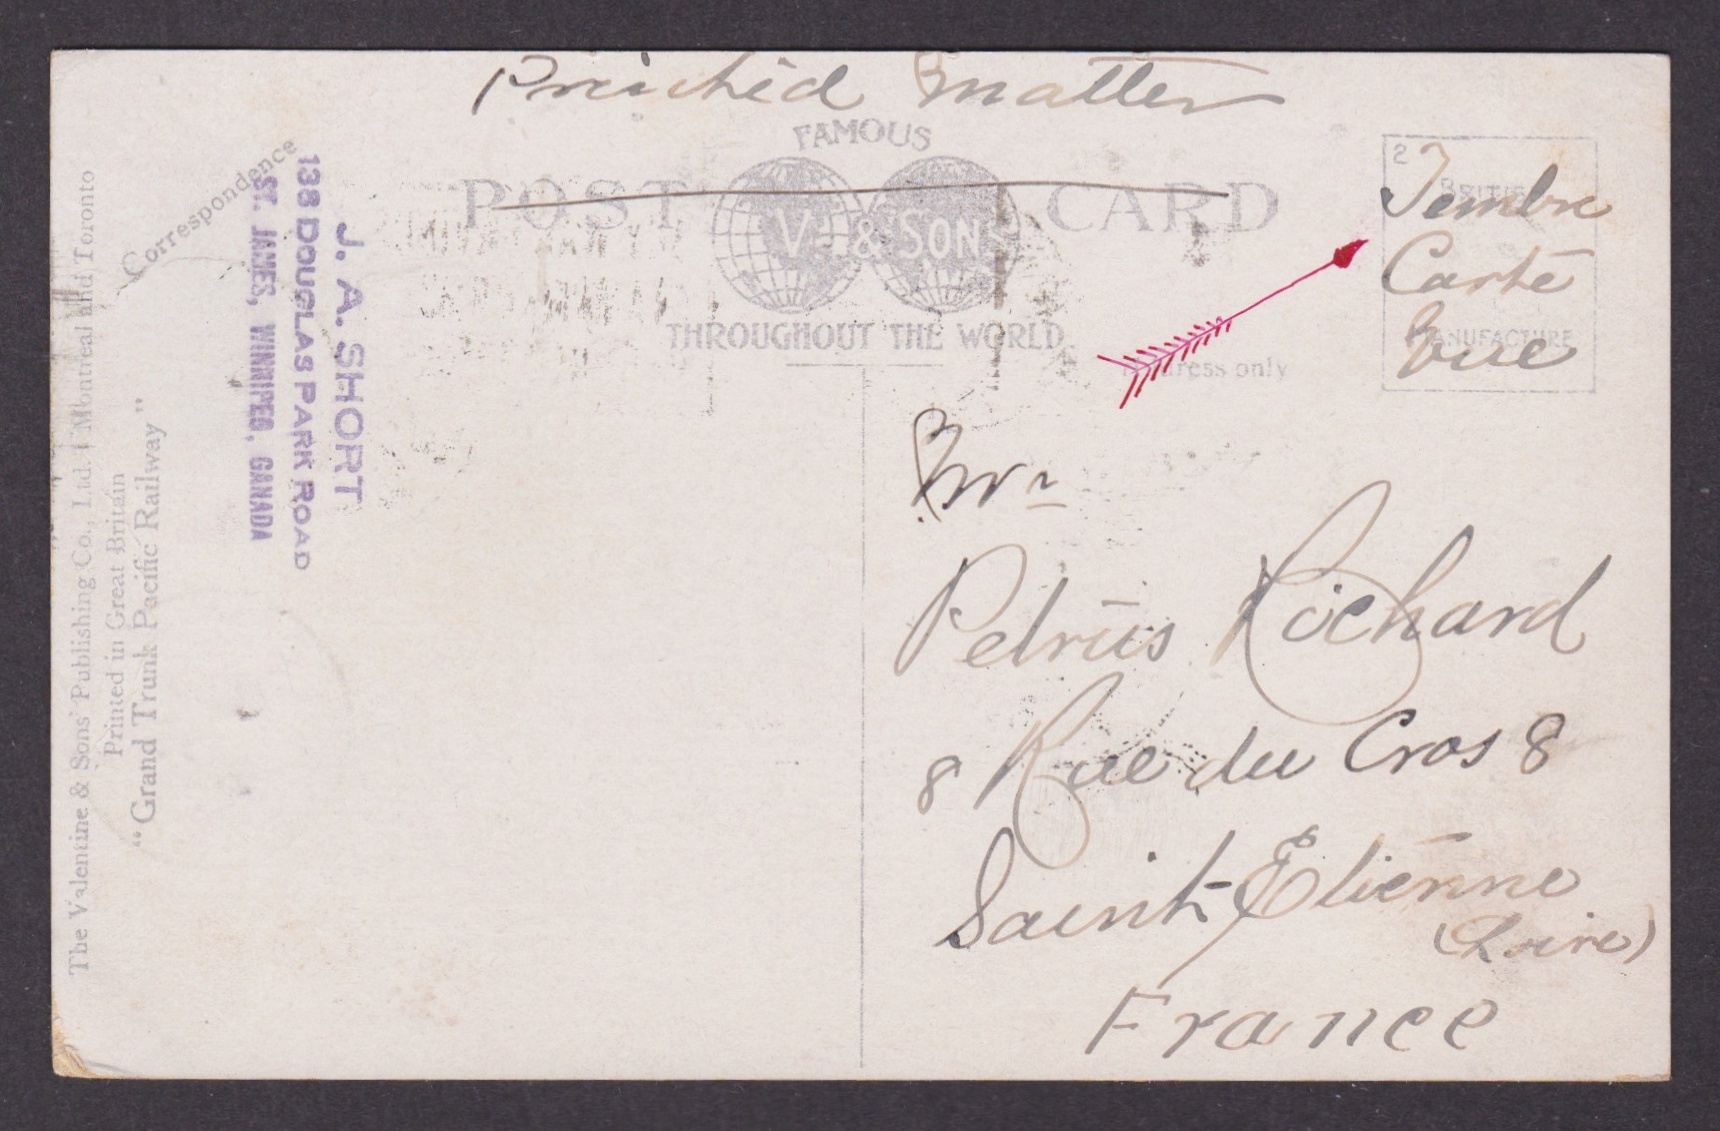 Printhed Matter
FAMOUS
POST CARD
V. & SONS
THROUGHOUT THE WORLD.
Correspondence
Address only
2
BRITISH
MANUFACTURE
Timbre
Carte
Vue
J. A. SHORT
138 DOUGLAS PARK ROAD
ST. JAMES, WINNIPEG, CANADA
The Valentine & Sons' Publishing Co., Ltd. Montreal and Toronto
Printed in Great Britain
"Grand Trunk Pacific Railway"
Mr
Petrus Richard
8 Rue du Cros 8
Saint-Etienne
(Loire)
France